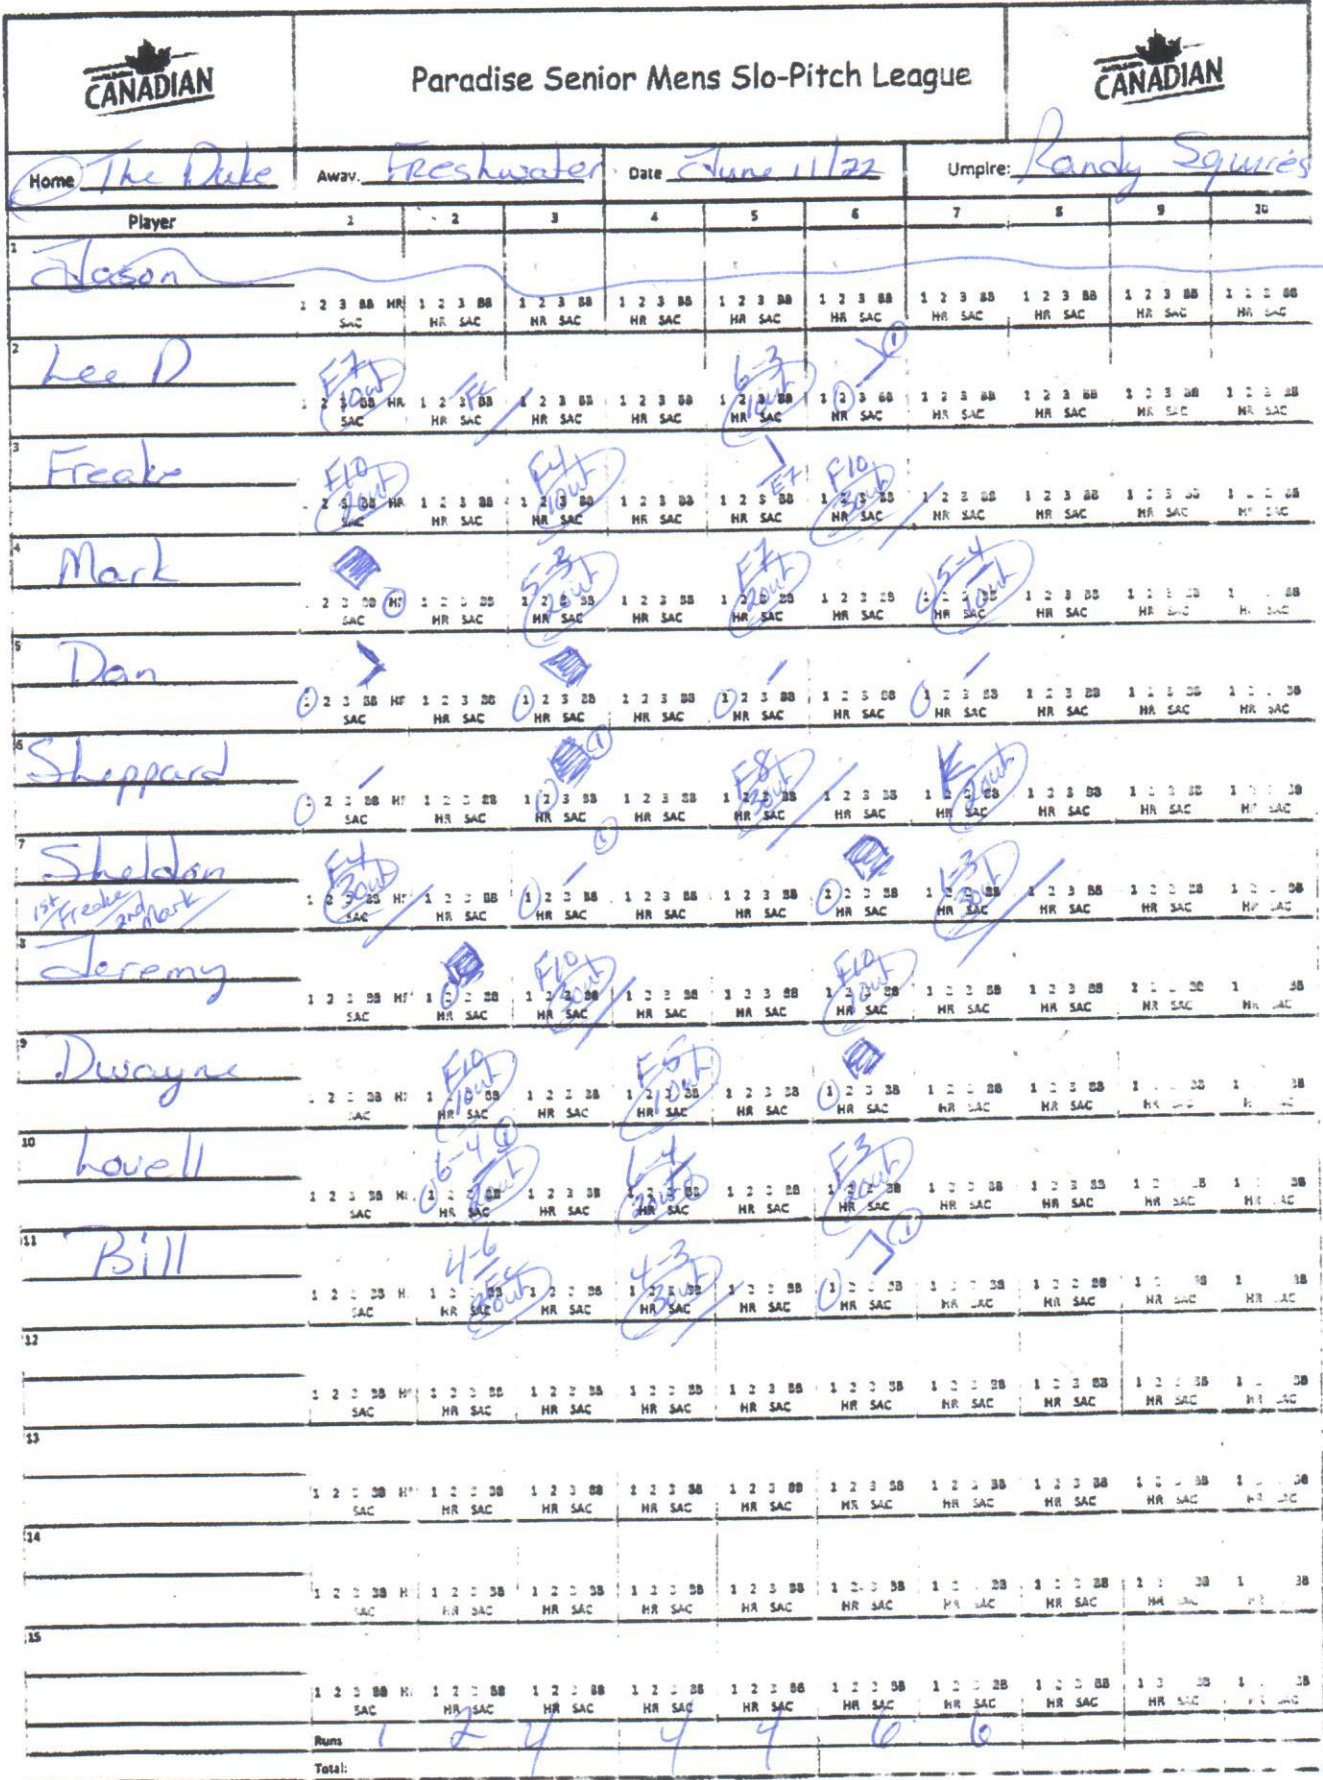 CANADIAN
Paradise Senior Mens Slo-Pitch League
CANADIAN
Home The Duke Away. Freshwater Date June 11/22 Umpire: Randy Squires
Player 1 2 3 4 5 6 7 8 9 10
1 Jason
1 2 3 BB HR 1 2 3 BB 1 2 3 BB 1 2 3 BB 1 2 3 BB 1 2 3 BB 1 2 3 BB 1 2 3 BB 1 2 3 BB
SAC HR SAC HR SAC HR SAC HR SAC HR SAC HR SAC HR SAC HR SAC HR SAC
2 Lee D
F7 1out FC 6-3 1out 1
3 Freake
F10 2out F4 1out E7 F10 3out
4 Mark
5-3 2out F7 2out 5-4 1out
5 Dan
6 Sheppard
1 F8 3out K 2out
7 Sheldon
1st Freake 2nd Mark
F4 3out 1 1-3 3out
8 Jeremy
F10 3out F10 1out
9 Dwayne
F10 1out F5 1out
10 Lovell
6-4 2out 1 6-4 2out F3 2out
11 Bill
4-6 FC 3out 4-3 3out 1
12
13
14
15
Runs 1 2 4 4 4 6 6
Total: